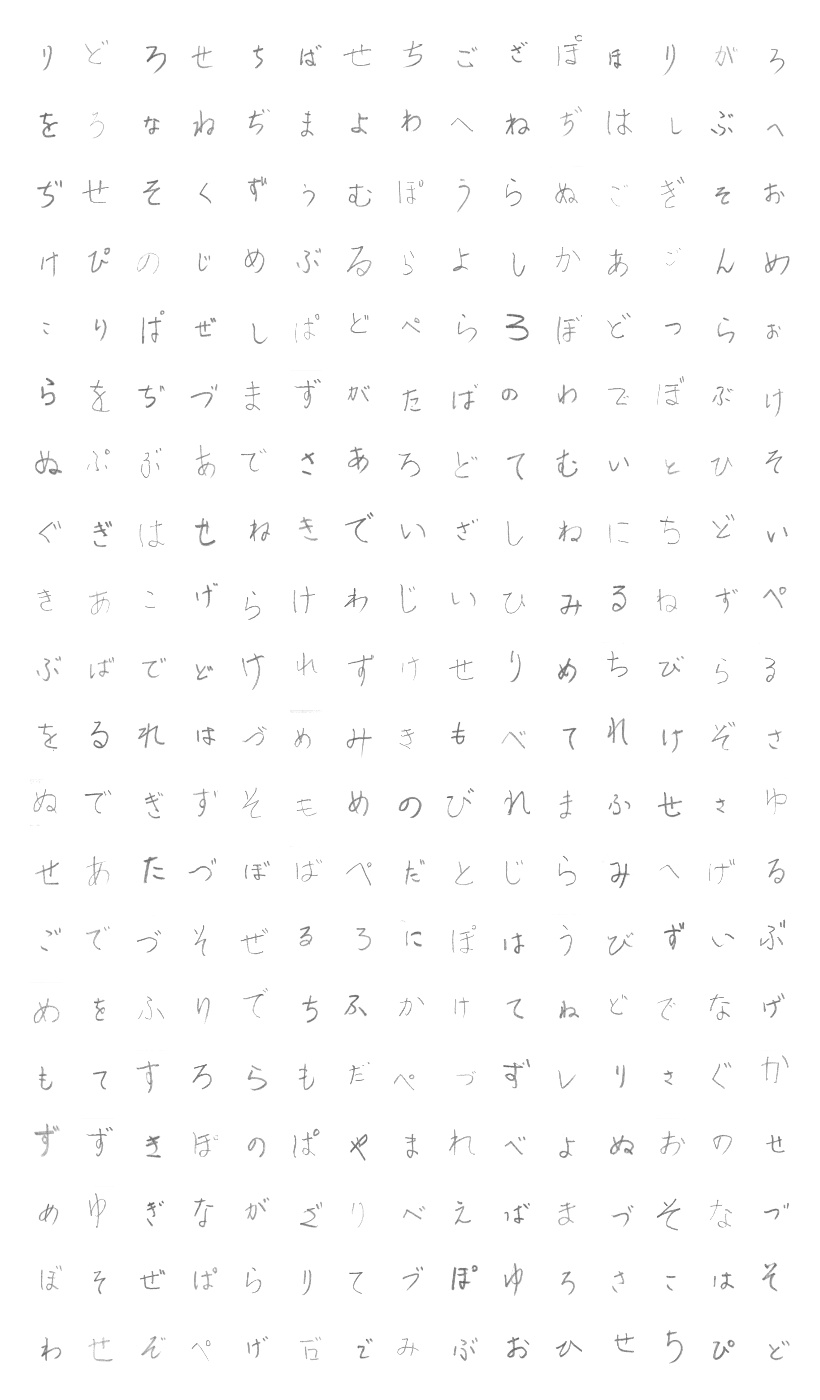 りどろせちばせちござぽほりがろ
をうなねぢまよわへねぢはしぶへ
ぢせそくずうむぽうらぬごぎそお
けぴのじめぶるらよしかあごんめ
こりぱぜしぱどぺらろぼどっらぉ
らをぢづまずがたばのわでぼぶけ
ぬぷぶあでさあろどてむいとひそ
ぐぎはせねきでいざしねにちどい
きあこげらけわじいひみるねずぺ
ぶばでどけれすけせりめちびらる
をるれはづめみきもべてれけぞさ
ぬでぎずそもめのびれまふせさゆ
せあたづぼばぺだとじらみへげる
ごでづそぜるろにぽはうびずいぶ
めをふりでちふかけてねどでなげ
もてすろらもだぺづずしりさぐか
ずずきぽのぱやまれべよぬおのせ
めゆぎながざりべえばまづそなづ
ぼそぜぱらりてづぽゆろさこはそ
わせぞぺげごでみぶおひせちぴど